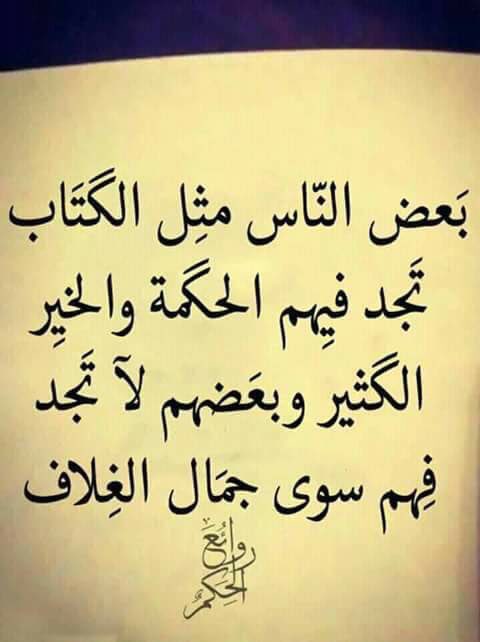 بَعض النّاس مثِل الكَتَاب
تَجد فيِهم الحكَمة والخيِر
الكَثير وبعَضهم لآ تَجد
فِهم سوى جمَال الغِلاف
روائع
الحكم